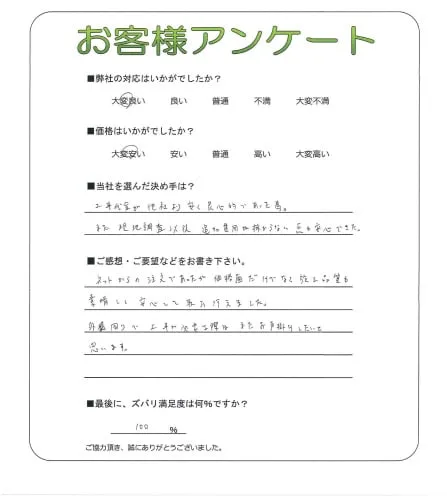 お客様アンケート
■弊社の対応はいかがでしたか？
大変良い 良い 普通 不満 大変不満
■価格はいかがでしたか？
大変安い 安い 普通 高い 大変高い
■当社を選んだ決め手は？
工事代金が他社より安く良心的であった為。
また現地調査以後 追加費用が掛からない点も安心できた。
■ご感想・ご要望などをお書き下さい。
ネットからの注文であったが価格面だけでなく施工品質も
素晴しく安心して取引行えました。
外構周りで工事が必要な際はまたお声掛けしたいと
思います。
■最後に、ズバリ満足度は何%ですか？
100 %
ご協力頂き、誠にありがとうございました。